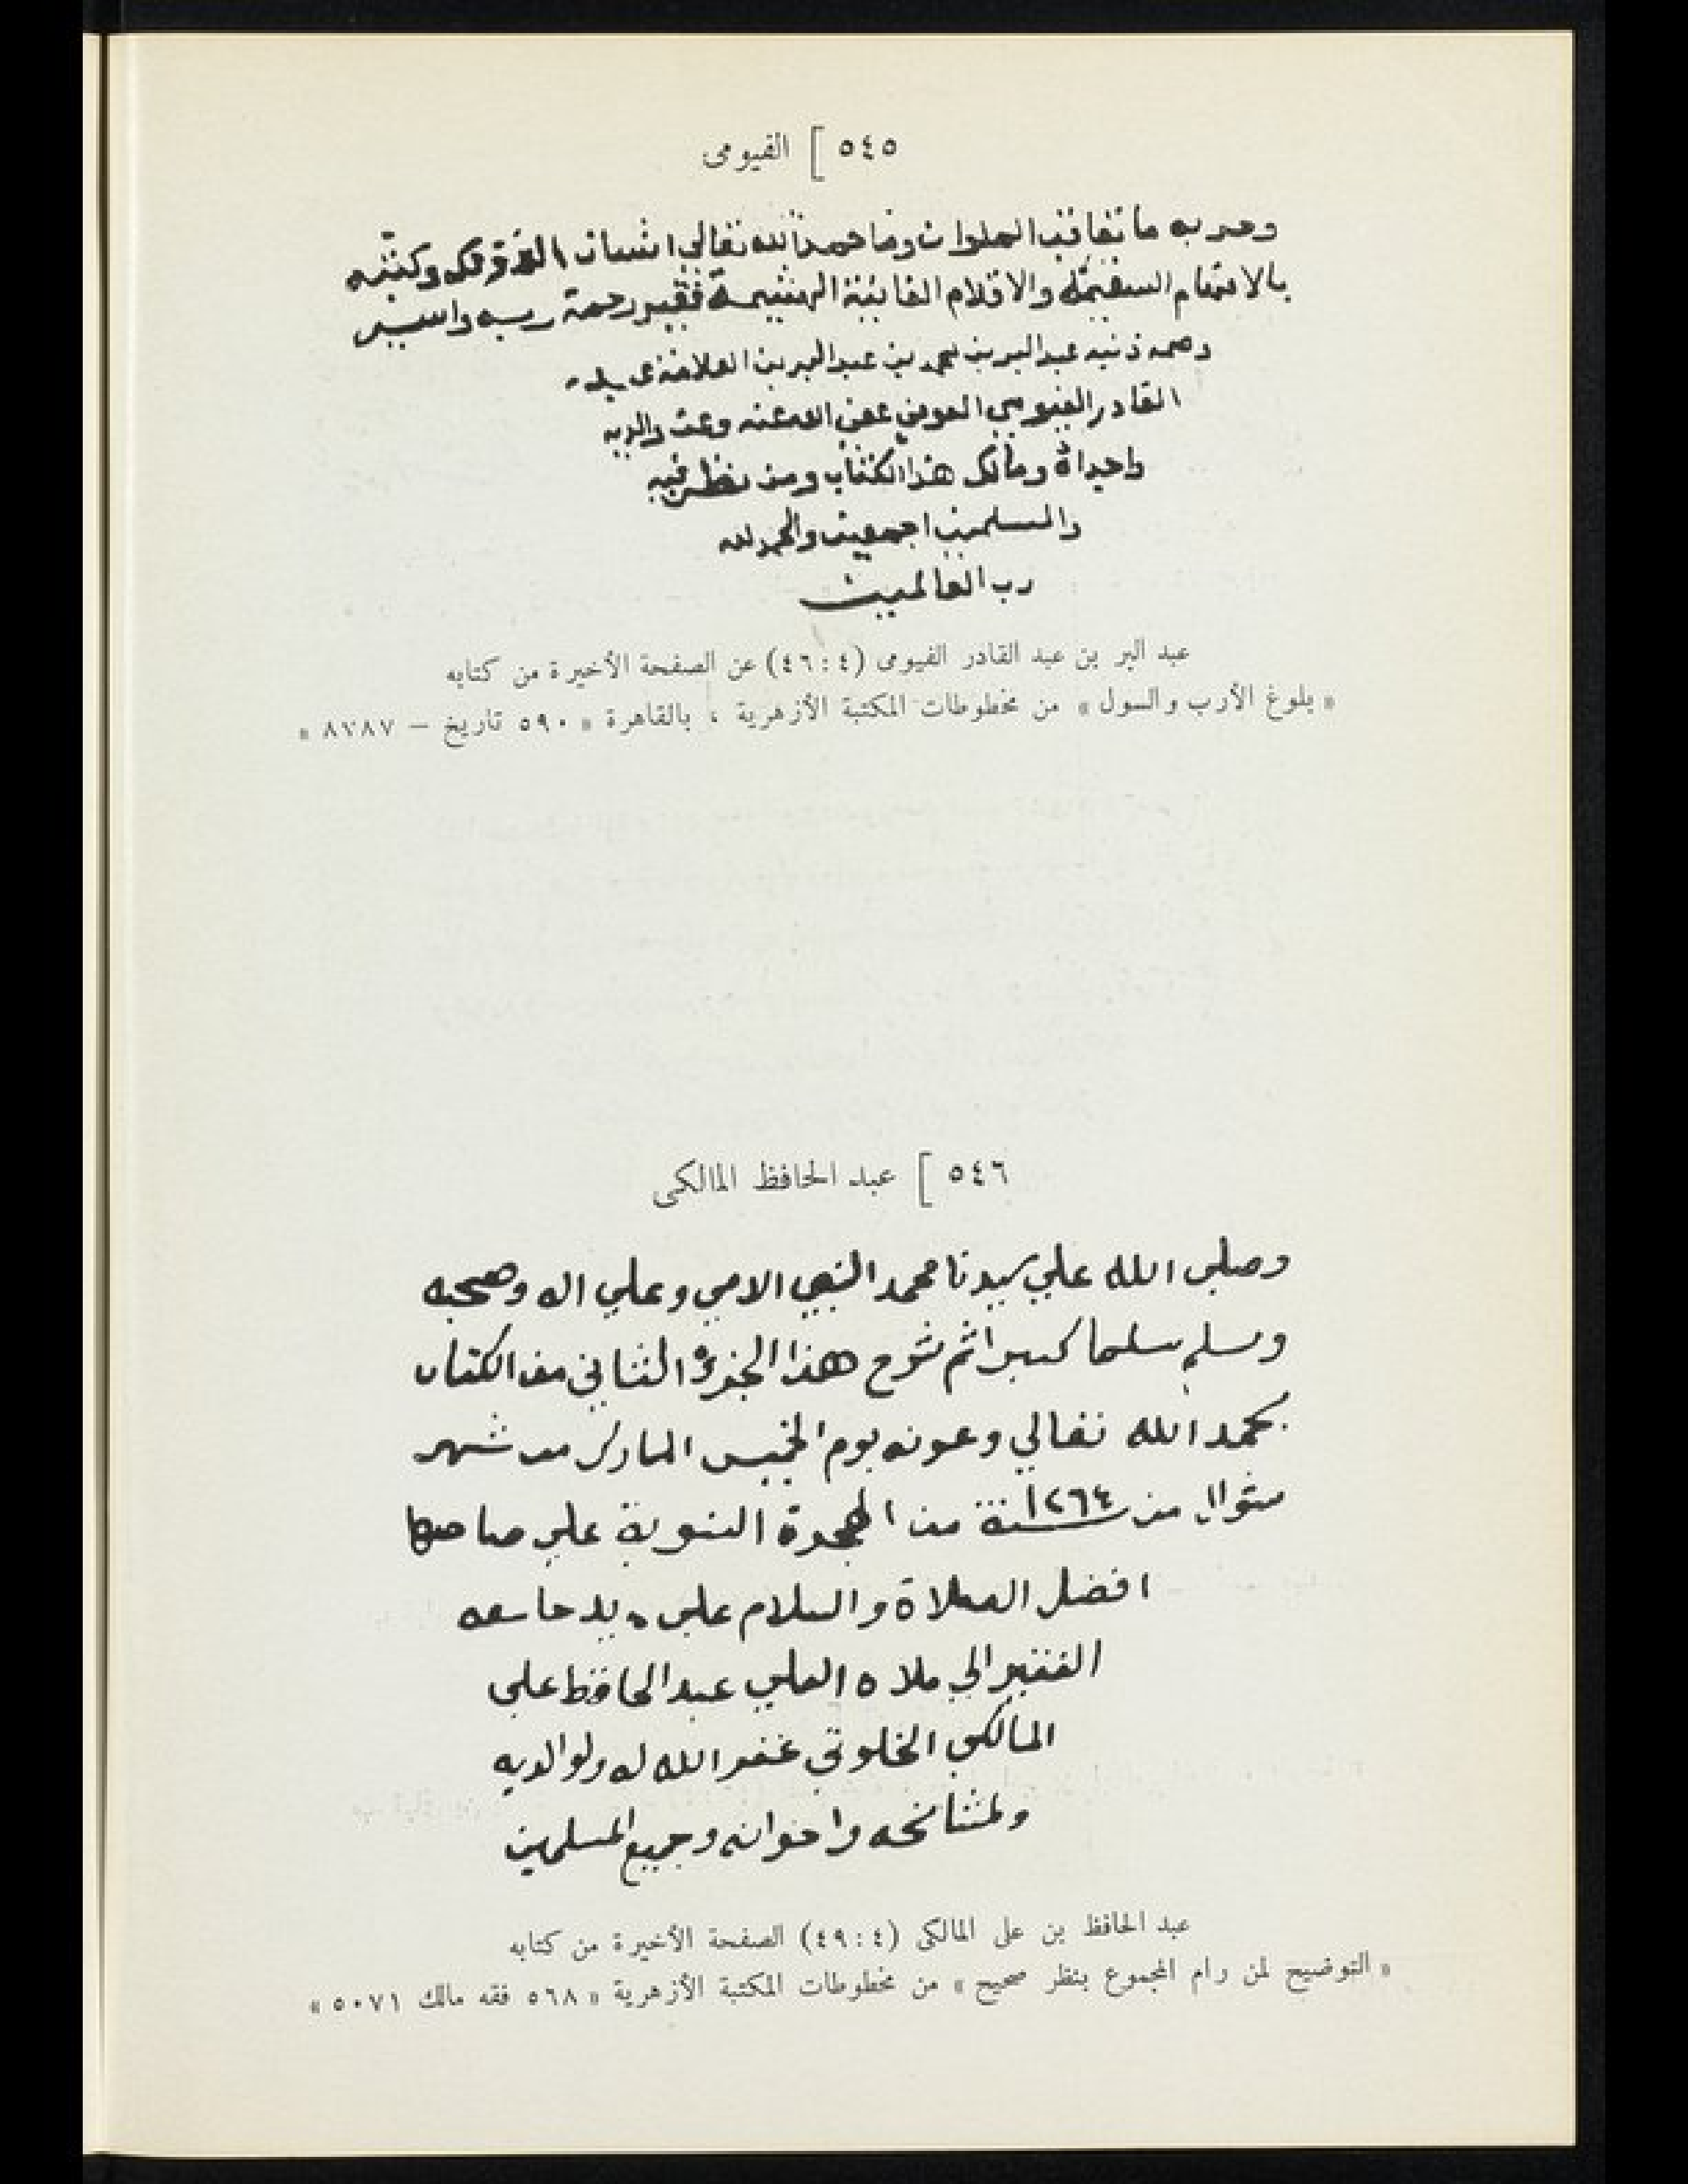 ٥٤٥ ] الفيومى
وحزبه ما تعاقب الملوان وما حمد الله تعالى انسان وكتبه
بالابتهام السقيمة والاقلام الفانية الهشيمة فقير رحمة ربه واسير
وصمة ذنبه عبد البر بن محمد بن عبد البر بن العلامة
القادر الفيومي العوفي عفى الله عنه وعن والديه
واحبائه ومالك هذا الكتاب ومن نظر فيه
والمسلمين اجمعين والحمد لله
رب العالمين
عبد البر بن عبد القادر الفيومى (٤ : ٤٦) عن الصفحة الأخيرة من كتابه
« بلوغ الأرب والسول » من مخطوطات المكتبة الأزهرية ، بالقاهرة « ٥٩٠ تاريخ – ٨٧٨٧ »
٥٤٦ ] عبد الحافظ المالكى
وصلى الله علي سيدنا محمد النبي الامي وعلي اله وصحبه
وسلم تسليما كبيرا تم شرح هذا الجزؤ الثاني من الكتاب
بحمد الله تعالي وعونه يوم الخميس المبارك من شهر
شوال من سنة ١٢٦٤ من الهجرة النبوية علي صاحبها
افضل الصلاة والسلام على يد جامعه
الفقير الي ملاه العلي عبد الحافظ على
المالكي الخلوتي غفر الله له ولوالديه
ولمشائخه واخوانه وجميع المسلمين
عبد الحافظ بن على المالكى (٤ : ٤٩) الصفحة الأخيرة من كتابه
« التوضيح لمن رام المجموع بنظر صحيح » من مخطوطات المكتبة الأزهرية « ٥٦٨ فقه مالك ٥٠٧١ »